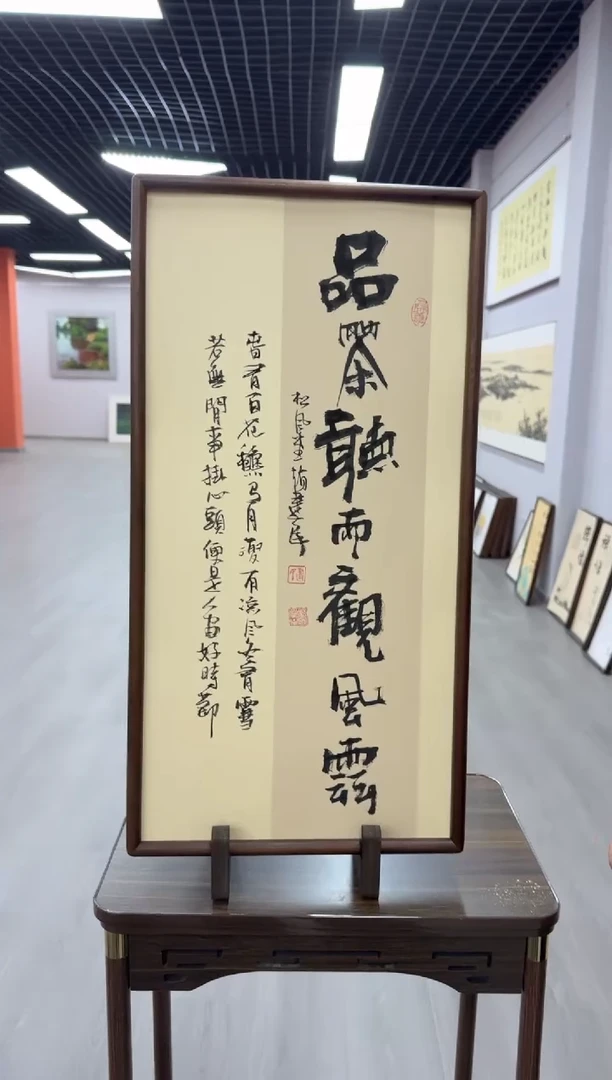 品茶聽雨觀風雲
松風
春有百花龝有月夏有涼風冬有雪
若無閒事掛心頭便是人間好時節